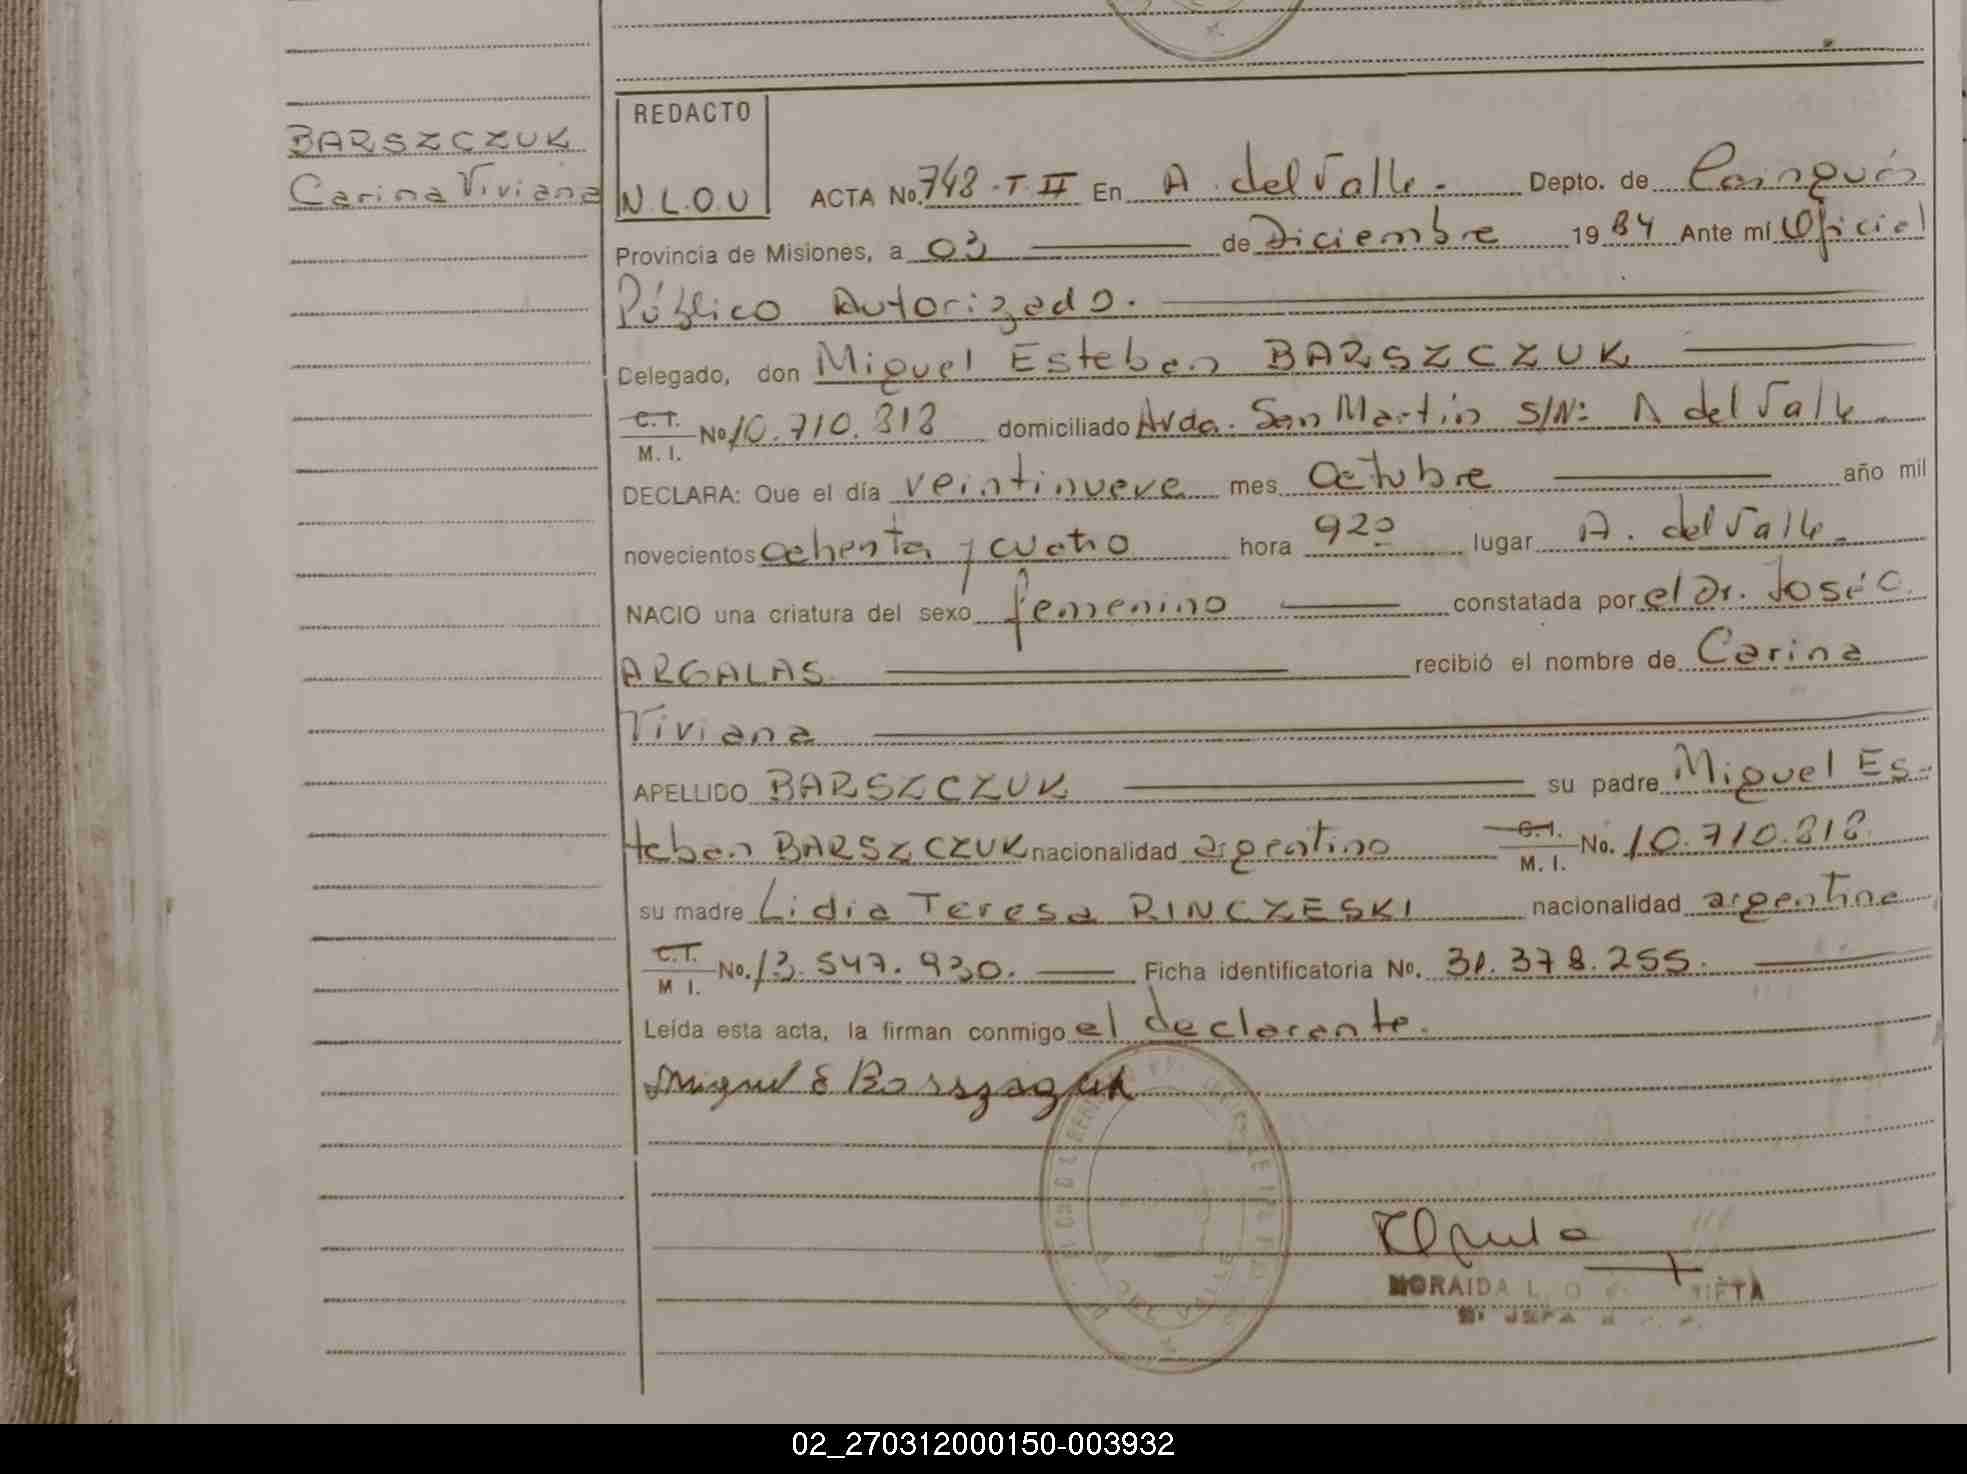 BARSZCZUK
Carina Viviana
REDACTO
N.L.O.U
ACTA No. 748 - T II En A. del Valle - Depto. de Cainguás
Provincia de Misiones, a 03 de Diciembre 1984 Ante mí Oficial
Público Autorizado.
Delegado, don Miguel Esteban BARSZCZUK
C.I.
M.I. No 10.710.818 domiciliado Avda. San Martín S/Nº A del Valle
DECLARA: Que el día veintinueve mes Octubre año mil
novecientos ochenta y cuatro hora 920 lugar A. del Valle
NACIO una criatura del sexo femenino constatada por el Dr. José C.
ARGALAS recibió el nombre de Carina
Viviana
APELLIDO BARSZCZUK su padre Miguel Es-
teban BARSZCZUK nacionalidad argentino C.I. M.I. No. 10.710.818
su madre Lidia Teresa RINCZESKI nacionalidad argentina
C.I.
M I. No. 13.547.930. Ficha identificatoria No. 31.378.255.
Leída esta acta, la firman conmigo el declarante.
Miguel E Barszczuk
DEL VALLE
NORAIDA L. O
JEFA
02_270312000150-003932